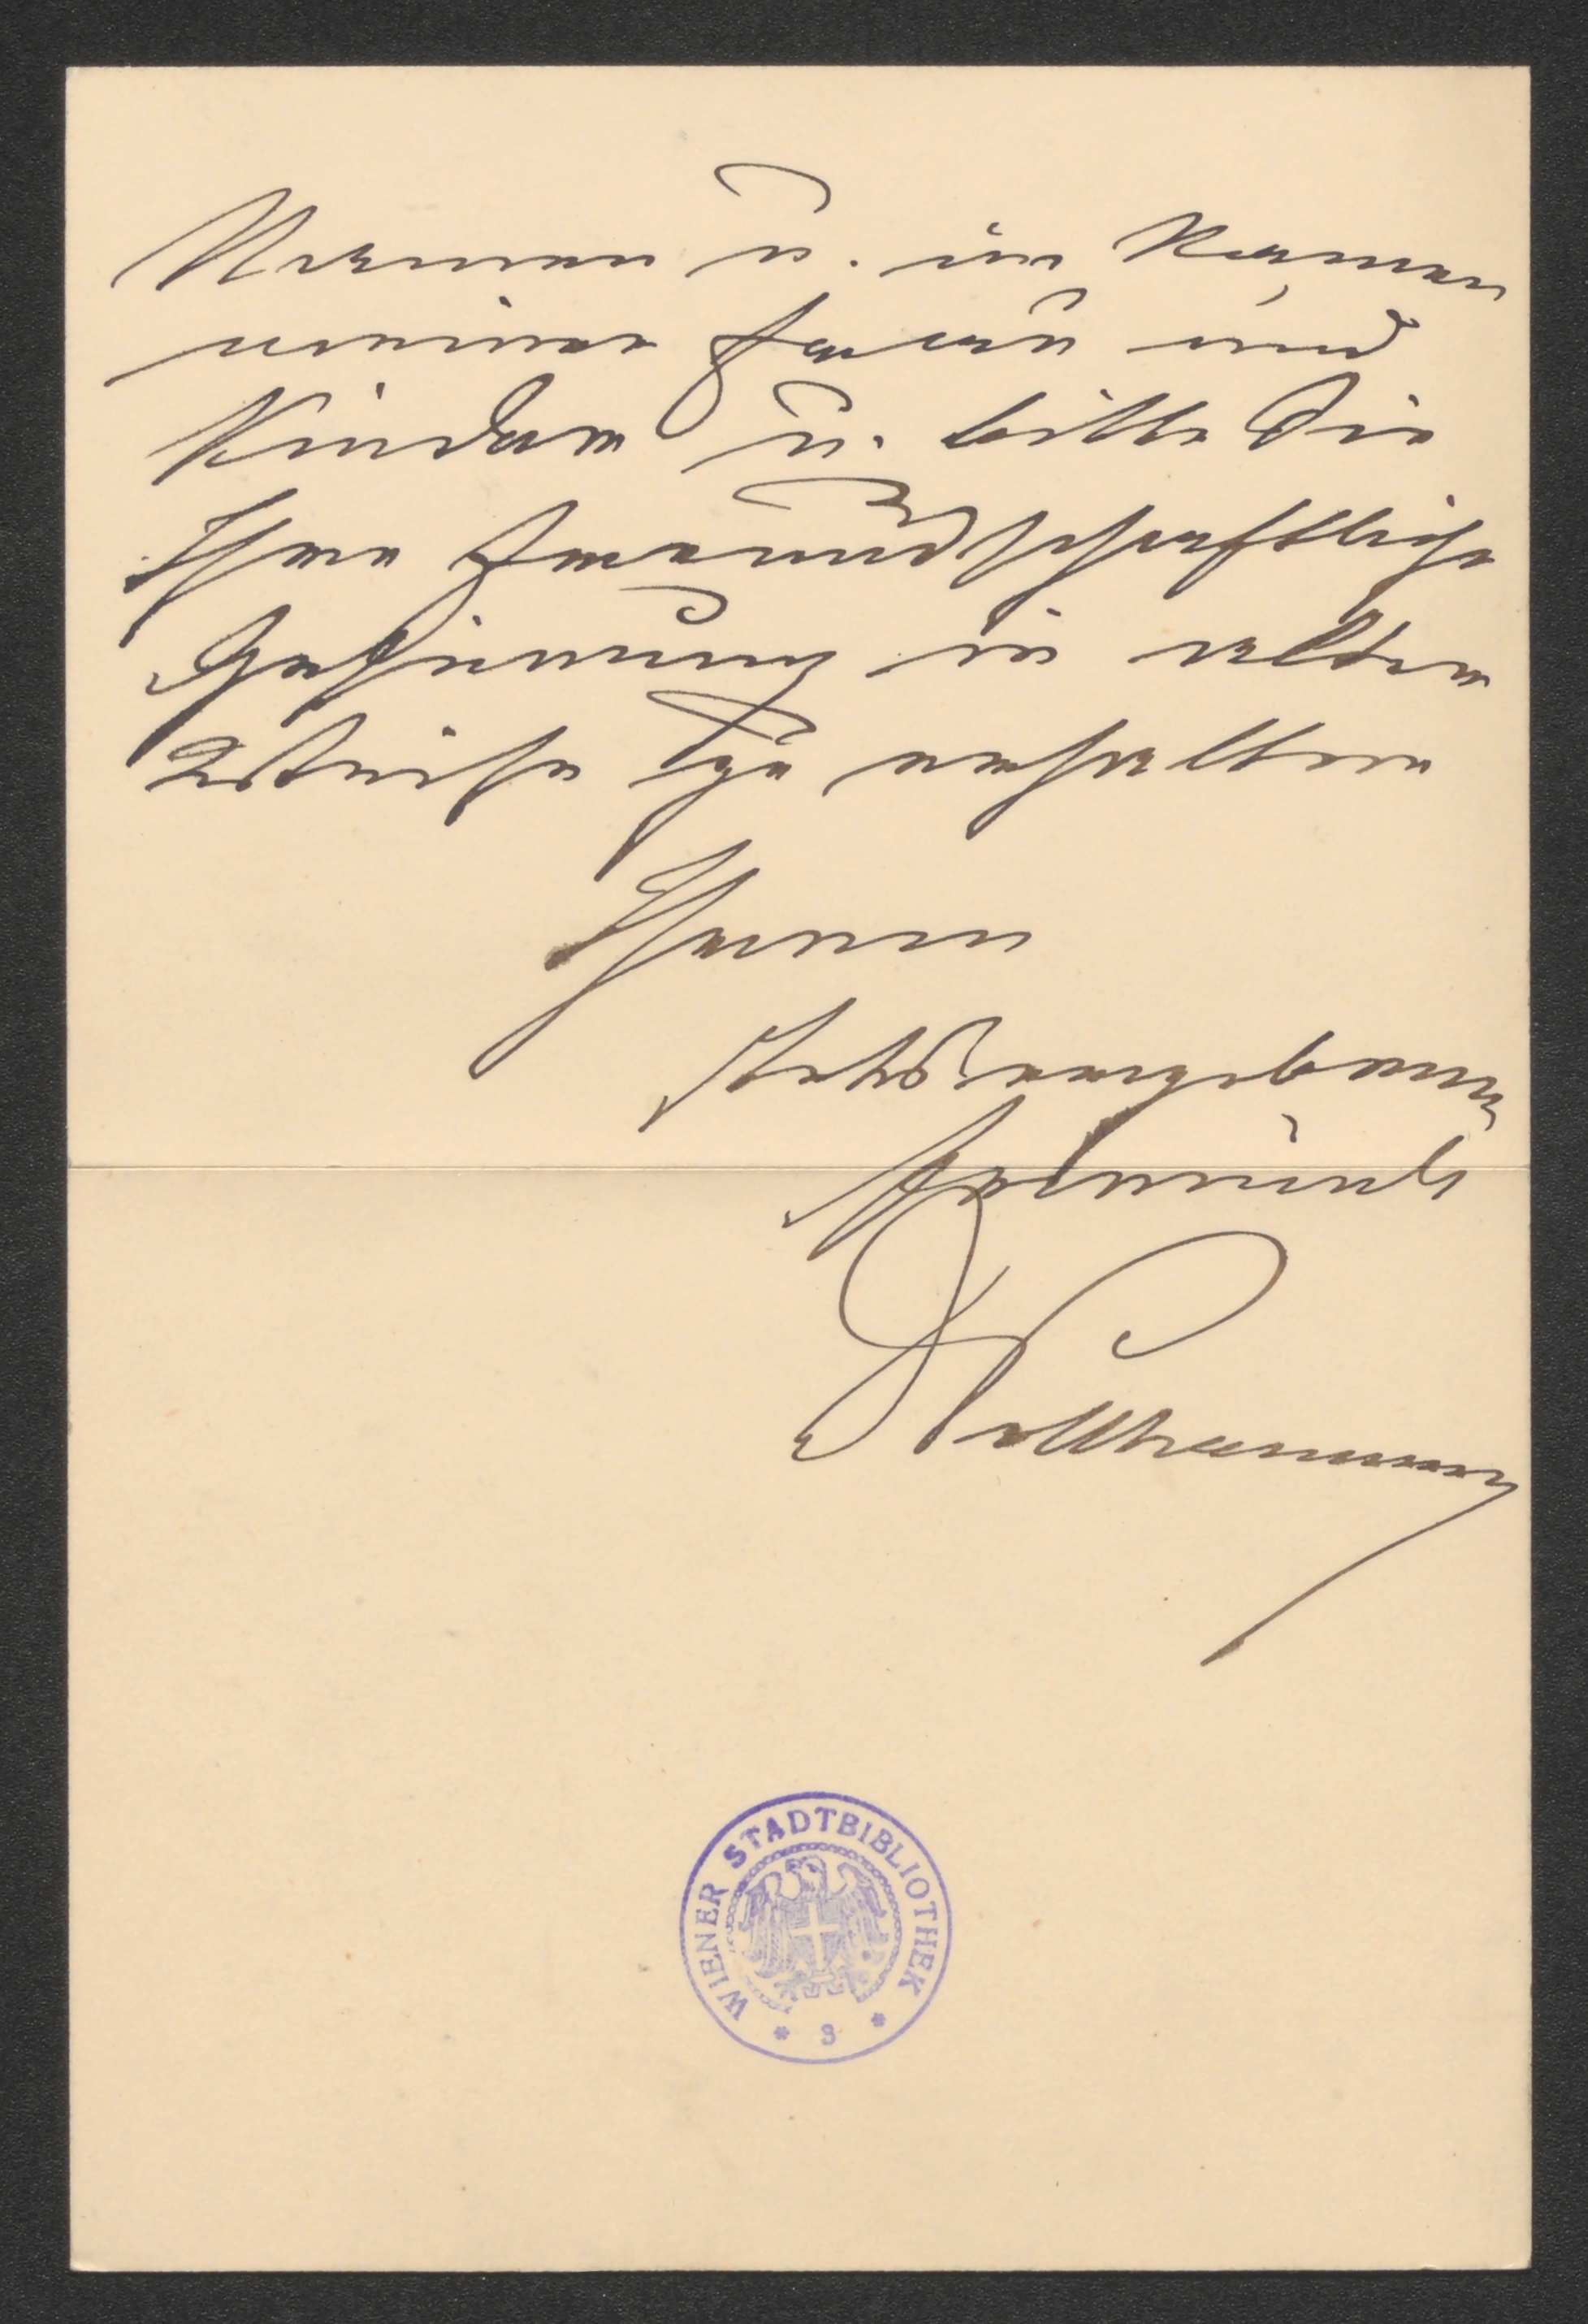 u. im Namen
meiner Frau und
Kinder u. bitte Sie
Ihre freundschaftliche
Gesinnung in alter
Weise zu erhalten
Ihrem
stets ergebenen
Freunde
WIENER STADTBIBLIOTHEK
* 3 *